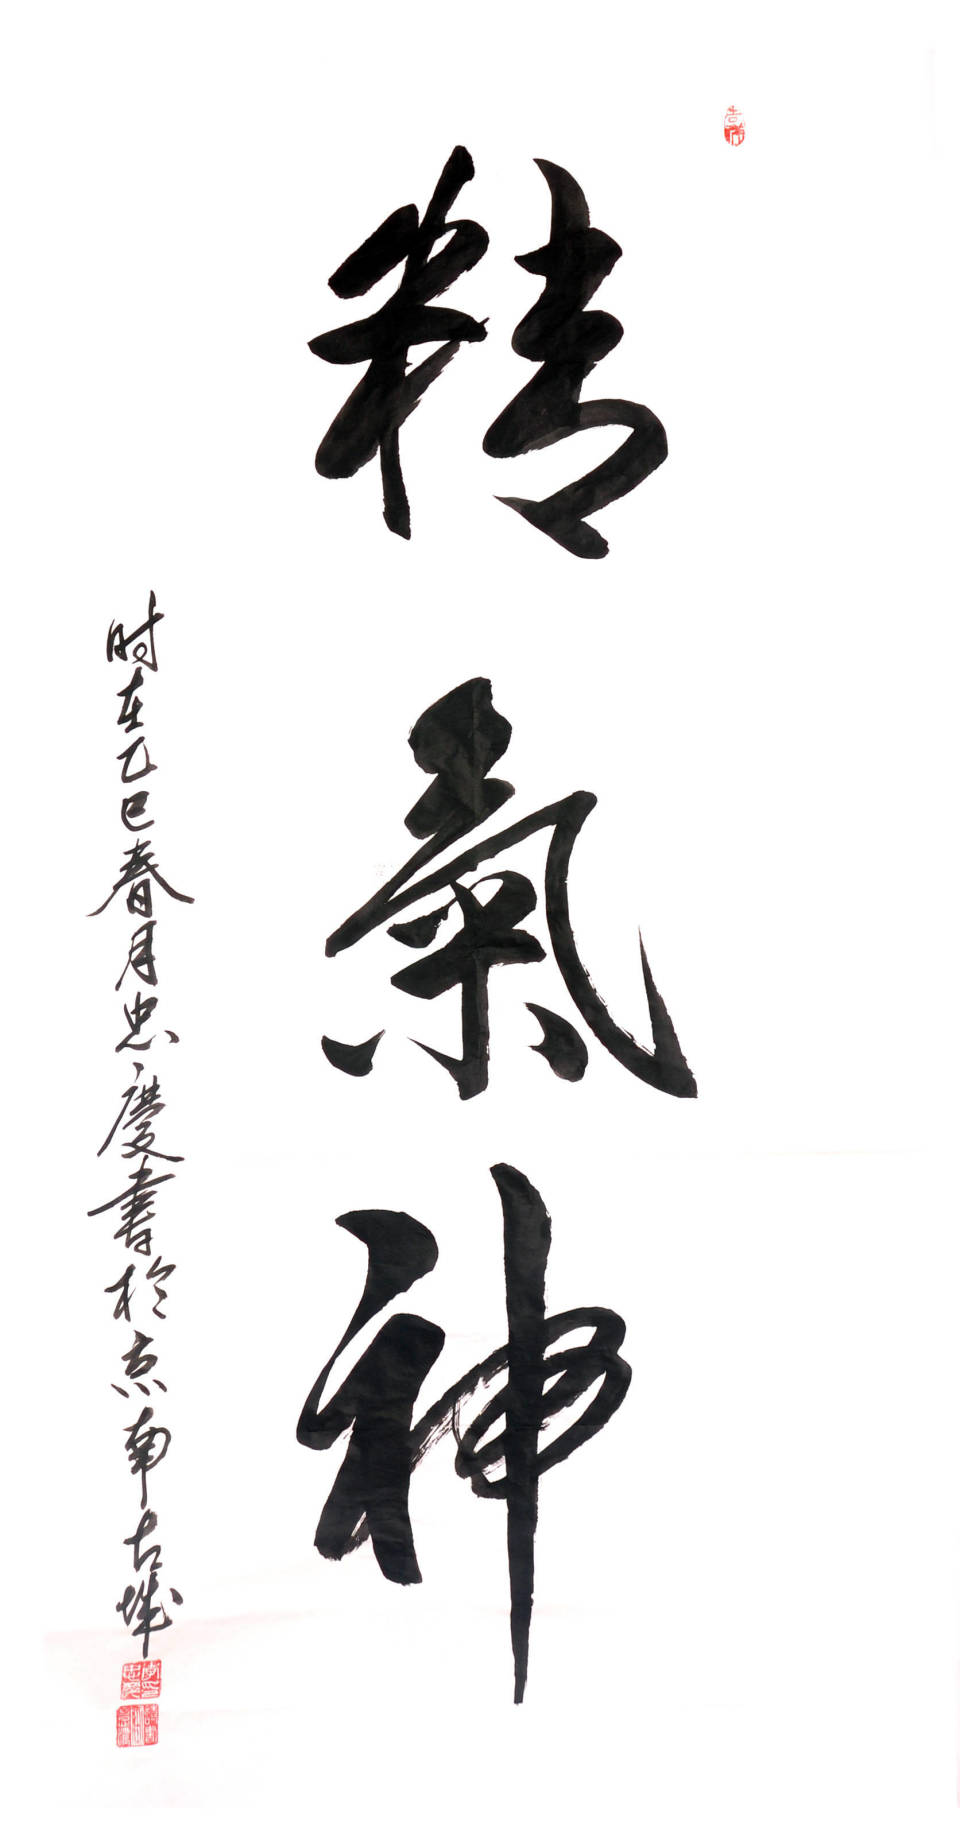 精氣神
时在乙巳春月忠慶書於京南古城